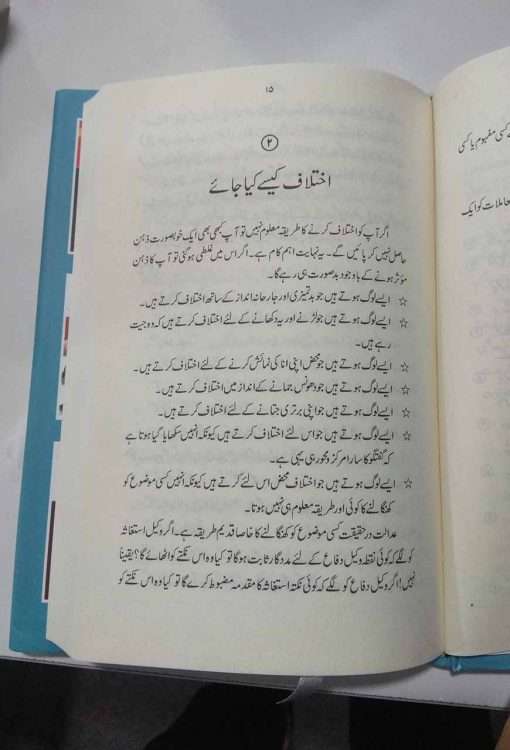 ۱۵
۲
اختلاف کیسے کیا جائے
اگر آپ کو اختلاف کرنے کا طریقہ معلوم نہیں تو آپ کبھی بھی ایک خوبصورت ذہن
حاصل نہیں کر پائیں گے۔ یہ نہایت اہم کام ہے۔ اگر اس میں غلطی ہو گئی تو آپ کا ذہن
مؤثر ہونے کے باوجود بدصورت ہی رہے گا۔
☆ ایسے لوگ ہوتے ہیں جو بدتمیزی اور جارحانہ انداز کے ساتھ اختلاف کرتے ہیں۔
☆ ایسے لوگ ہوتے ہیں جو لڑنے اور یہ دکھانے کے لئے اختلاف کرتے ہیں کہ وہ جیت
رہے ہیں۔
☆ ایسے لوگ ہوتے ہیں جو محض اپنی انا کی نمائش کرنے کے لئے اختلاف کرتے ہیں۔
☆ ایسے لوگ ہوتے ہیں جو دھونس جمانے کے انداز میں اختلاف کرتے ہیں۔
☆ ایسے لوگ ہوتے ہیں جو اپنی برتری جتانے کے لئے اختلاف کرتے ہیں۔
☆ ایسے لوگ ہوتے ہیں جو اس لئے اختلاف کرتے ہیں کیونکہ انہیں سکھایا گیا ہوتا ہے
کہ گفتگو کا سارا مرکز و محور ہی یہی ہے۔
☆ ایسے لوگ ہوتے ہیں جو اختلاف محض اس لئے کرتے ہیں کیونکہ انہیں کسی موضوع کو
کھنگالنے کا کوئی اور طریقہ معلوم ہی نہیں ہوتا۔
عدالت در حقیقت کسی موضوع کو کھنگالنے کا خاصا قدیم طریقہ ہے۔ اگر وکیل استغاثہ
کو لگے کہ کوئی نقطہ وکیل دفاع کے لئے مددگار ثابت ہو گا تو کیا وہ اس نکتے کو اٹھائے گا؟ یقیناً
نہیں! اگر وکیل دفاع کو لگے کہ کوئی نکتہ استغاثہ کا مقدمہ مضبوط کرے گا تو کیا وہ اس نکتے کو
کسی مفہوم یا کسی
معاملات کو ایک